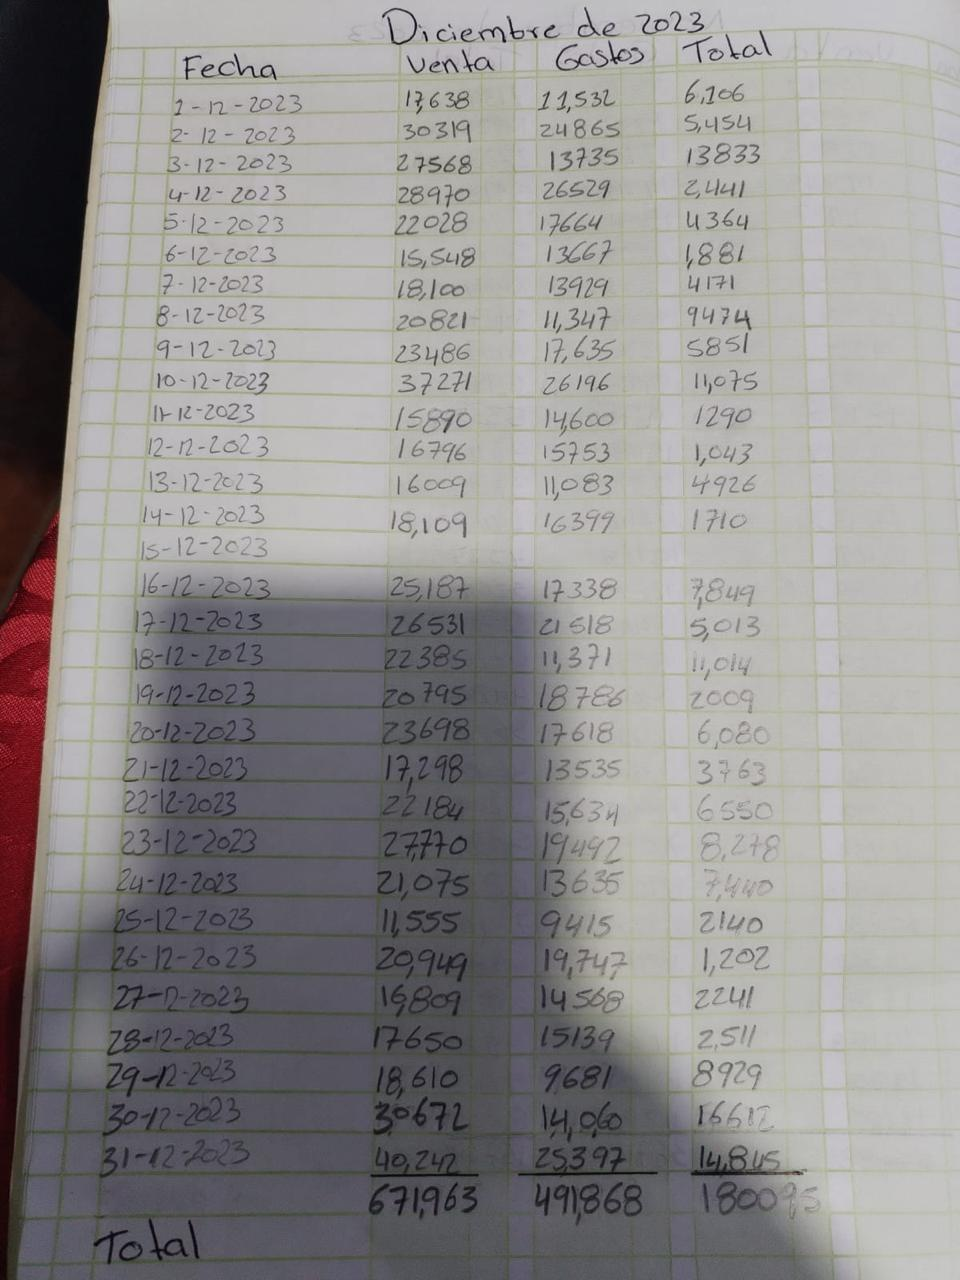 Diciembre de 2023
Fecha Venta Gastos Total
1-12-2023 17,638 11,532 6,106
2-12-2023 30319 24865 5,454
3-12-2023 27568 13735 13833
4-12-2023 28970 26529 2,441
5-12-2023 22028 17664 4364
6-12-2023 15,548 13667 1,881
7-12-2023 18,100 13929 4171
8-12-2023 20821 11,347 9474
9-12-2023 23486 17,635 5851
10-12-2023 37271 26196 11,075
11-12-2023 15890 14,600 1290
12-12-2023 16796 15753 1,043
13-12-2023 16009 11,083 4926
14-12-2023 18,109 16399 1710
15-12-2023
16-12-2023 25,187 17338 7,849
17-12-2023 26531 21518 5,013
18-12-2023 22385 11,371 11,014
19-12-2023 20795 18786 2009
20-12-2023 23698 17618 6,080
21-12-2023 17,298 13535 3763
22-12-2023 22184 15,634 6550
23-12-2023 27,770 19492 8,278
24-12-2023 21,075 13635 7,440
25-12-2023 11,555 9415 2140
26-12-2023 20,949 19,747 1,202
27-12-2023 16,809 14568 2241
28-12-2023 17650 15139 2,511
29-12-2023 18,610 9681 8929
30-12-2023 30672 14,060 16612
31-12-2023 40,242 25,397 14,845
671,963 491,868 180095
Total